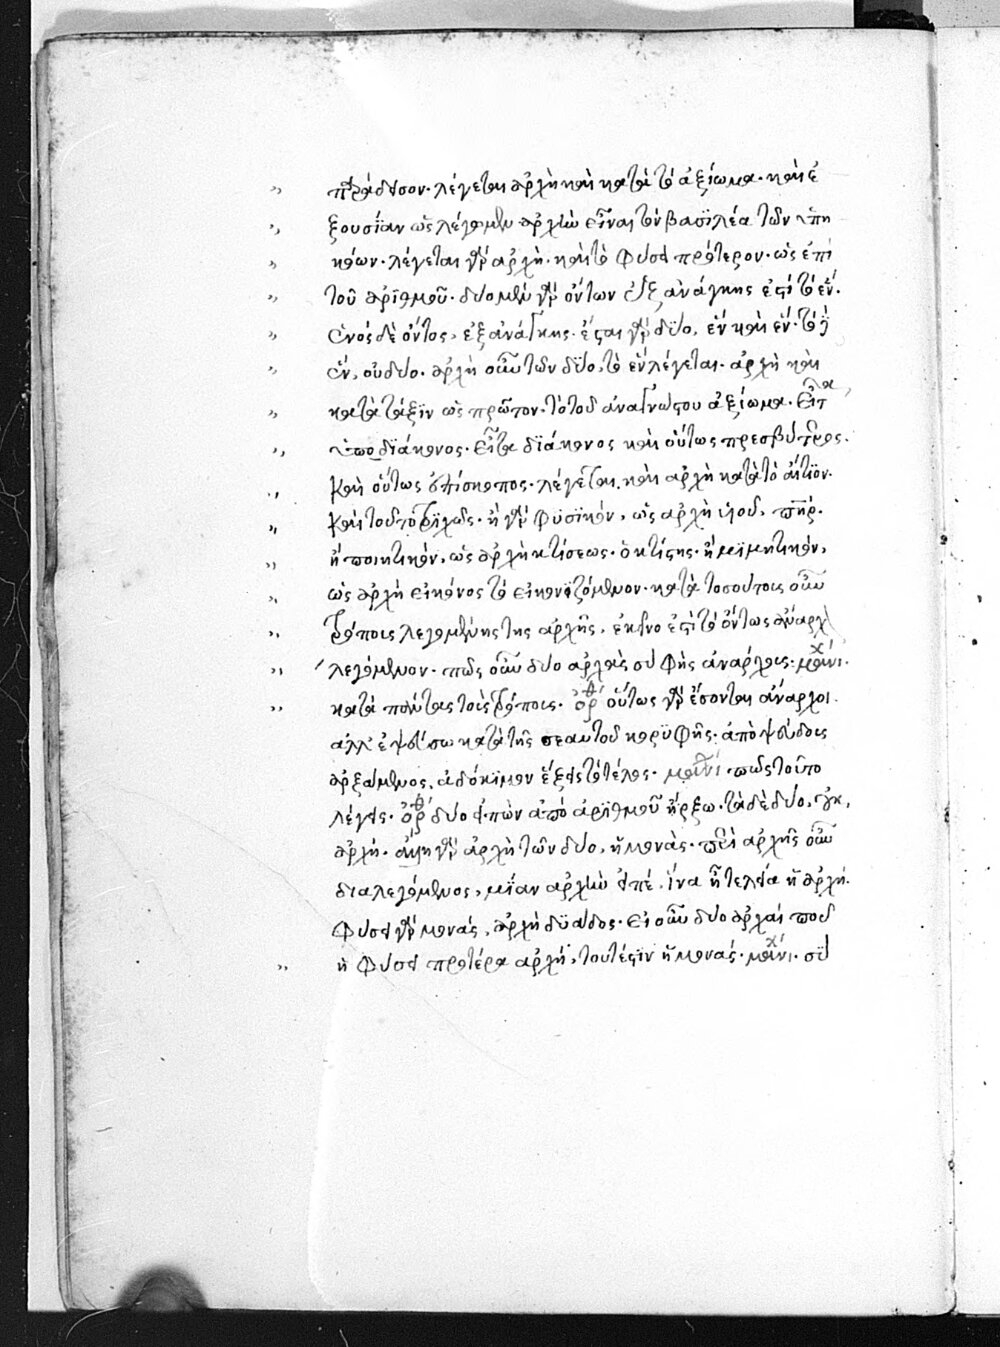 παράδεισον· λέγεται ἀρχὴ καὶ κατὰ τὸ ἀξίωμα· καὶ ἐ
ξουσίαν ὡς λέγομεν ἀρχὴν εἶναι τὸν βασιλέα τῶν ὑπη
κόων· λέγεται γὰρ ἀρχὴ· καὶ τὸ φύσει πρότερον· ὡς ἐπὶ
τοῦ ἀριθμοῦ· δύο μὲν γὰρ ὄντων ἐξ ἀνάγκης ἐστὶ τὸ ἕν·
ἑνὸς δὲ ὄντος, ἐξ ἀνάγκης· ἔσται γὰρ δύο, ἓν καὶ ἕν· τὸ δὲ
ἕν, οὐ δύο· ἀρχὴ οὖν τῶν δύο, τὸ ἓν λέγεται· ἀρχὴ καὶ
κατὰ τάξιν ὡς πρῶτον· τὸ τοῦ ἀναγνώστου ἀξίωμα· εἶτα
ὑποδιάκονος· εἶτα διάκονος καὶ οὕτως πρεσβύτερος·
καὶ οὕτως ἐπίσκοπος· λέγεται καὶ ἀρχὴ κατὰ τὸ αἴτιον·
καὶ τοῦτο τριχῶς· ἢ γὰρ φυσικὸν, ὡς ἀρχὴ υἱοῦ, πατήρ·
ἢ ποιητικὸν, ὡς ἀρχὴ κτίσεως· ὁ κτίστης· ἢ μιμητικὸν,
ὡς ἀρχὴ εἰκόνος τὸ εἰκονιζόμενον· κατὰ τοσούτους οὖν
τρόπους λεγομένης τῆς ἀρχῆς, ἐκεῖνο ἐστὶ τὸ ὄντως ἄναρχ
λεγόμενον· πῶς οὖν δύο ἀρχὰς σὺ φῂς ἀνάρχους· μανι χ
κατὰ πάντας τοὺς τρόπους· ὀρθ οὕτως γὰρ ἔσονται ἄναρχοι·
ἀλλ' ἐψεύσω κατὰ τῆς σεαυτοῦ κορυφῆς· ἀπὸ ψεύδους
ἀρξάμενος, ἀδόκιμον ἕξεις τὸ τέλος· μανι χ· πῶς τοῦτο
λέγεις· ὀρθ δύο εἰπὼν ἀπὸ ἀριθμοῦ ἤρξω· τὰ δὲ δύο, οὐκ
ἀρχή· αὕτη γὰρ ἀρχὴ τῶν δύο, ἡ μονάς· περὶ ἀρχῆς οὖν
διαλεγόμενος, μίαν ἀρχὴν εἰπέ, ἵνα ᾖ τελεία ἡ ἀρχή·
φύσει γὰρ μονάς, ἀρχὴ δυάδος· εἰ οὖν δύο ἀρχαί ποῦ
ἡ φύσει προτέρα ἀρχή, τουτέστιν ἡ μονάς· μανι χ· σὺ